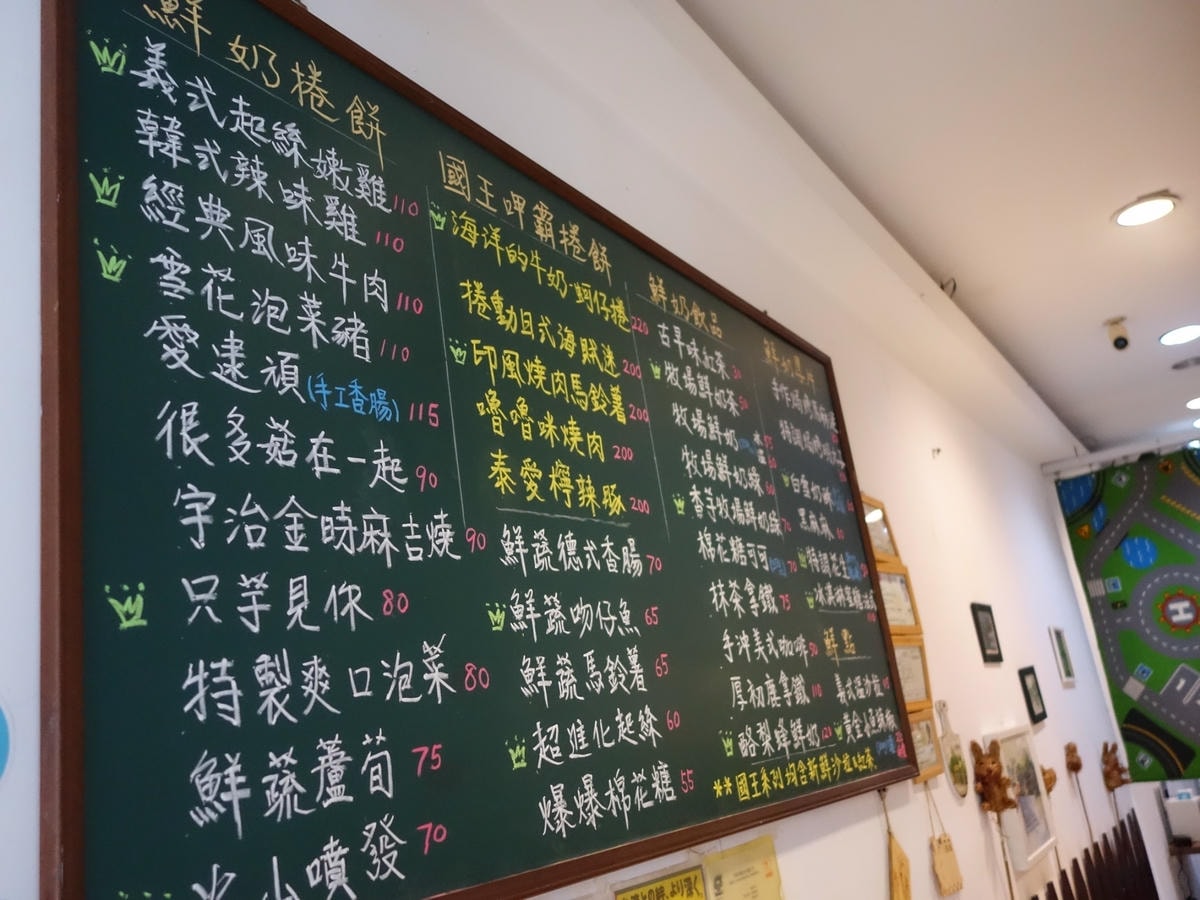 鮮奶捲餅
義式起絲嫩雞 110
韓式辣味雞 110
經典風味牛肉 110
雪花泡菜豬 110
愛逮頑(手工香腸) 115
很多菇在一起 90
宇治金時麻吉燒 90
只芋見你 80
特製爽口泡菜 80
鮮蔬蘆筍 75
火山噴發 70
國王呷霸捲餅
海洋的牛奶-蚵仔捲 220
捲動日式海賊迷 200
印風燒肉馬鈴薯 200
嚕嚕咪燒肉 200
泰愛檸辣豚 200
鮮蔬德式香腸 70
鮮蔬吻仔魚 65
鮮蔬馬鈴薯 65
超進化起絲 60
爆爆棉花糖 55
鮮奶飲品
古早味紅茶 30
牧場鮮奶茶 50
牧場鮮奶
牧場鮮奶綠
香芋牧場鮮奶綠 70
棉花糖可可 70
抹茶拿鐵 75
手沖美式咖啡 90
厚初鹿拿鐵 110
酪梨蜂鮮奶 120
黑麻麻
特調花生
鮮點
義式溫沙拉
**國王系列均含新鮮沙拉&紅茶